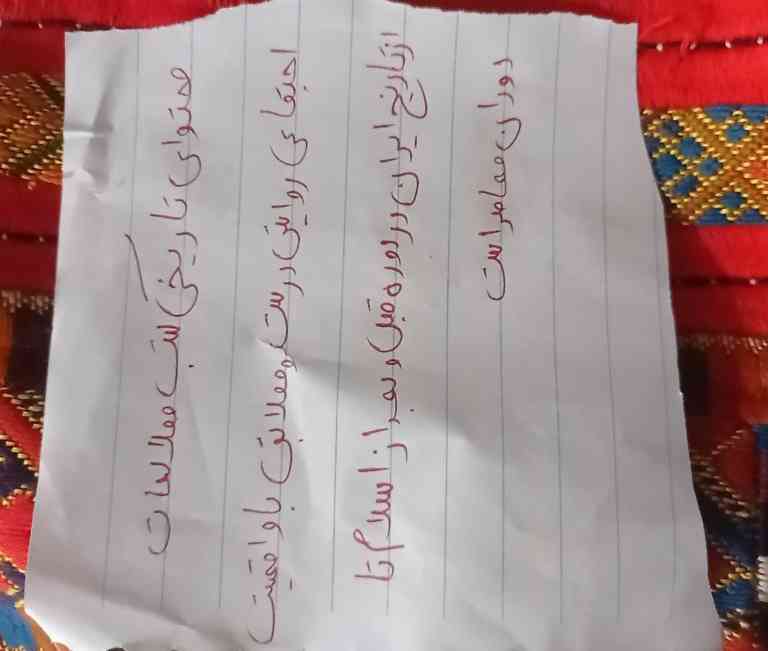 محتوای تاریخی کتب مطالعات
اجتماعی روایتی درست و مطابق با واقعیت
از تاریخ ایران در دوره قبل و بعد از اسلام تا
دوران معاصر است